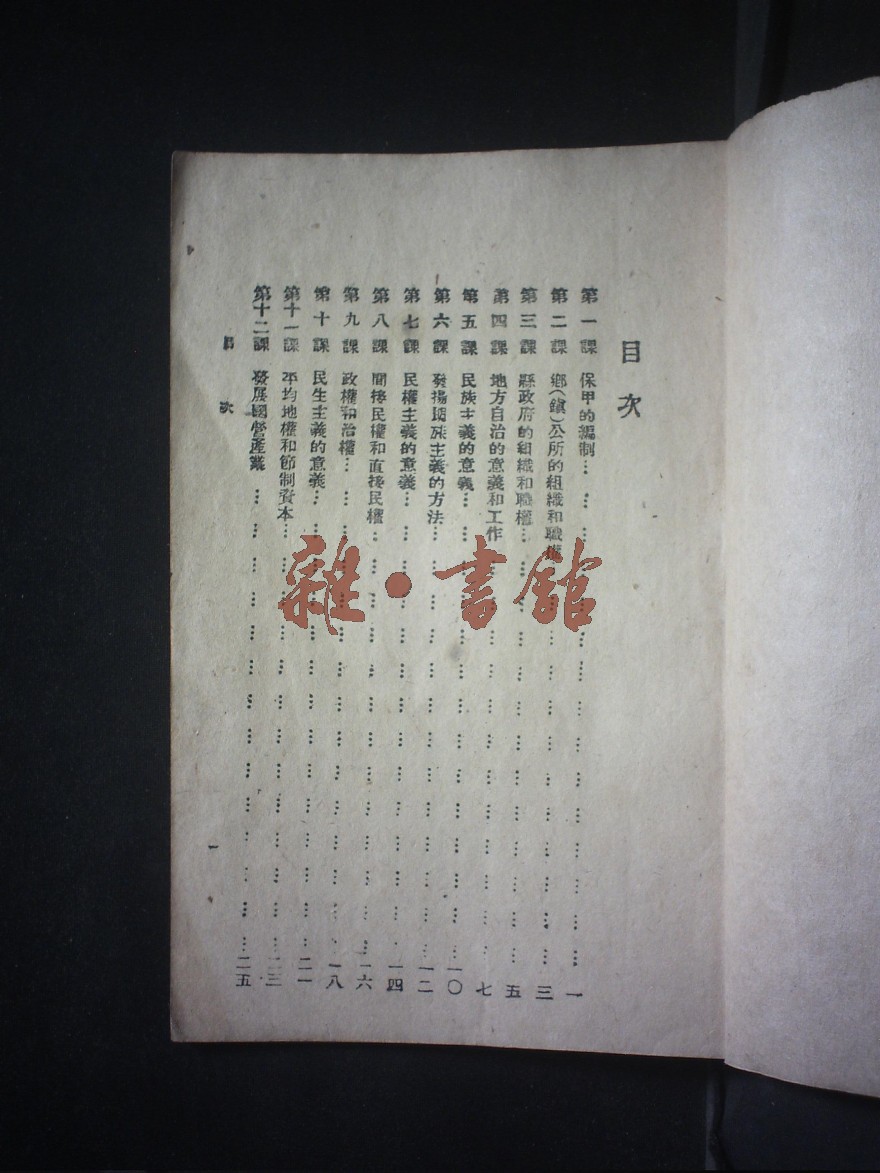 目次
第一課 保甲的編制……………………一
第二課 鄉(鎮)公所的組織和職權……………………三
第三課 縣政府的組織和職權……………………五
第四課 地方自治的意義和工作……………………七
第五課 民族主義的意義……………………一〇
第六課 發揚民族主義的方法……………………一二
第七課 民權主義的意義……………………一四
第八課 間接民權和直接民權……………………一六
第九課 政權和治權……………………一八
第十課 民生主義的意義……………………二一
第十一課 平均地權和節制資本……………………二三
第十二課 發展國營產業……………………二五
目次
雜·書館